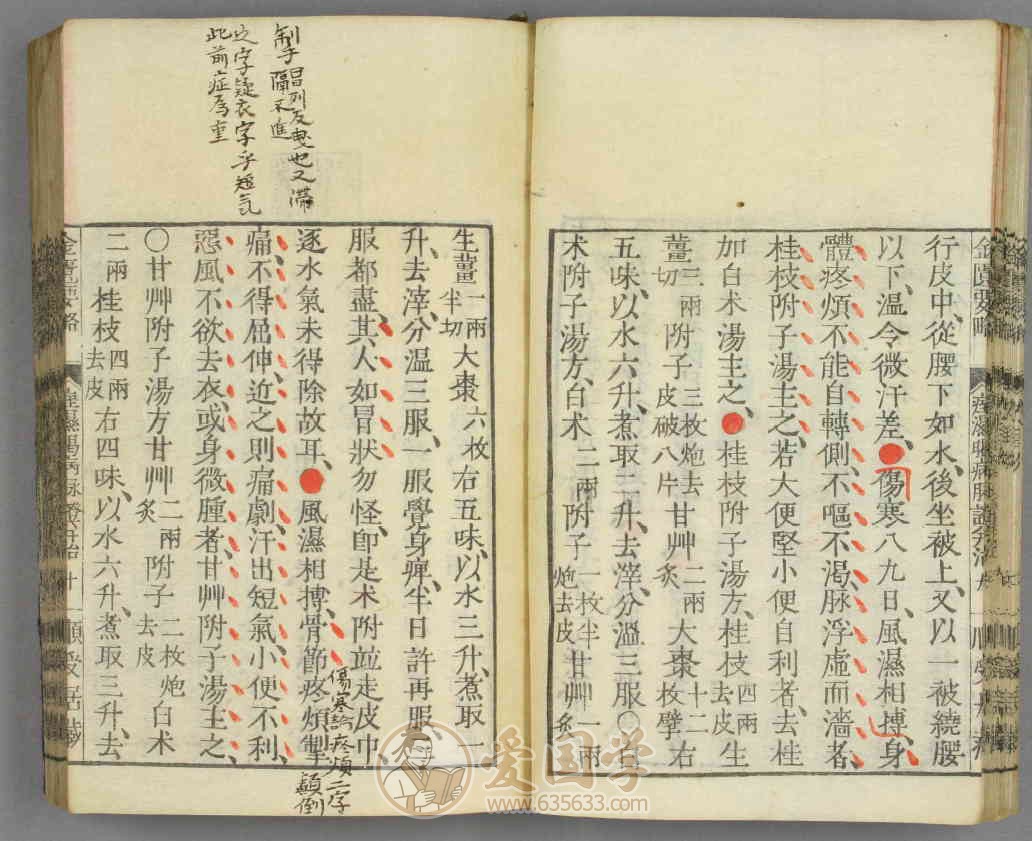 行皮中、從腰下如水、後坐被上、又以一被繞腰
以下、溫令微汗差、傷寒八九日、風濕相搏、身
體疼煩、不能自轉側、不嘔不渴、脉浮虛而濇者、
桂枝附子湯主之、若大便堅、小便自利者、去桂
加白朮湯主之、桂枝附子湯方、桂枝四兩去皮 生
薑三兩切 附子三枚炮去皮破八片 甘艸二兩炙 大棗十二枚擘 右
五味、以水六升、煮取二升、去滓、分溫三服、〇白
朮附子湯方、白朮二兩 附子一枚半炮去皮 甘艸一兩炙
生薑一兩半切 大棗六枚 右五味、以水三升、煮取一
升、去滓、分溫三服、一服覺身痺、半日許再服、三
服都盡、其人如冒狀、勿怪、卽是朮附竝走皮中、
逐水氣未得除故耳、風濕相搏、骨節疼煩、掣
痛、不得屈伸、近之則痛劇、汗出短氣、小便不利、
惡風不欲去衣、或身微腫者、甘艸附子湯主之、
〇甘艸附子湯方 甘艸二兩炙 附子二枚炮去皮 白朮
二兩 桂枝四兩去皮 右四味、以水六升、煮取三升、去
金匱要略
痙濕暍病脉證并治
十
順受居藏
昌列反曳也又滯
隔不進
字疑衣字乎短氣
此前症為重
傷寒論疼煩二字
顛倒
爱国学
www.635633.com